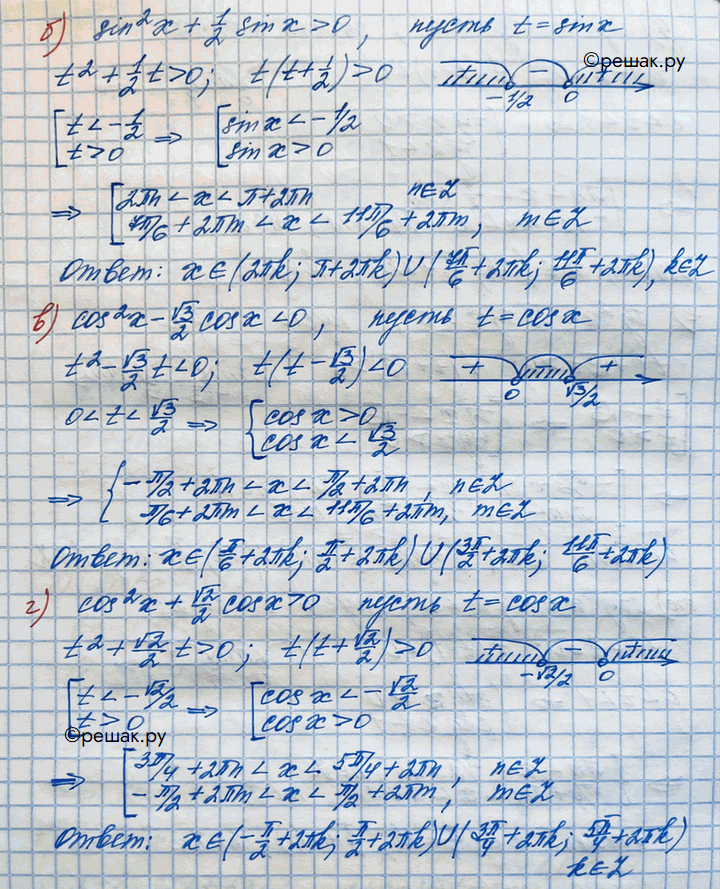 б) sin²x + 1/2 sin x > 0, пусть t = sin x
©решак.ру
t² + 1/2 t > 0; t(t + 1/2) > 0 + − +
−1/2 0
[ t < −1/2 ⇒ [ sin x < −1/2
t > 0 sin x > 0
⇒ [ 2πn < x < π + 2πn n ∈ Z
7π/6 + 2πm < x < 11π/6 + 2πm, m ∈ Z
Ответ: x ∈ (2πk; π + 2πk) ∪ (7π/6 + 2πk; 11π/6 + 2πk), k ∈ Z
в) cos²x − √3/2 cos x < 0, пусть t = cos x
t² − √3/2 t < 0; t(t − √3/2) < 0 + +
0 √3/2
0 < t < √3/2 ⇒ { cos x > 0
cos x < √3/2
⇒ { −π/2 + 2πn < x < π/2 + 2πn, n ∈ Z
π/6 + 2πm < x < 11π/6 + 2πm, m ∈ Z
Ответ: x ∈ (π/6 + 2πk; π/2 + 2πk) ∪ (3π/2 + 2πk; 11π/6 + 2πk)
г) cos²x + √2/2 cos x > 0 пусть t = cos x
t² + √2/2 t > 0; t(t + √2/2) > 0 + − +
−√2/2 0
[ t < −√2/2 ⇒ [ cos x < −√2/2
t > 0 cos x > 0
©решак.ру
⇒ [ 3π/4 + 2πn < x < 5π/4 + 2πn, n ∈ Z
−π/2 + 2πm < x < π/2 + 2πm, m ∈ Z
Ответ: x ∈ (−π/2 + 2πk; π/2 + 2πk) ∪ (3π/4 + 2πk; 5π/4 + 2πk)
k ∈ Z